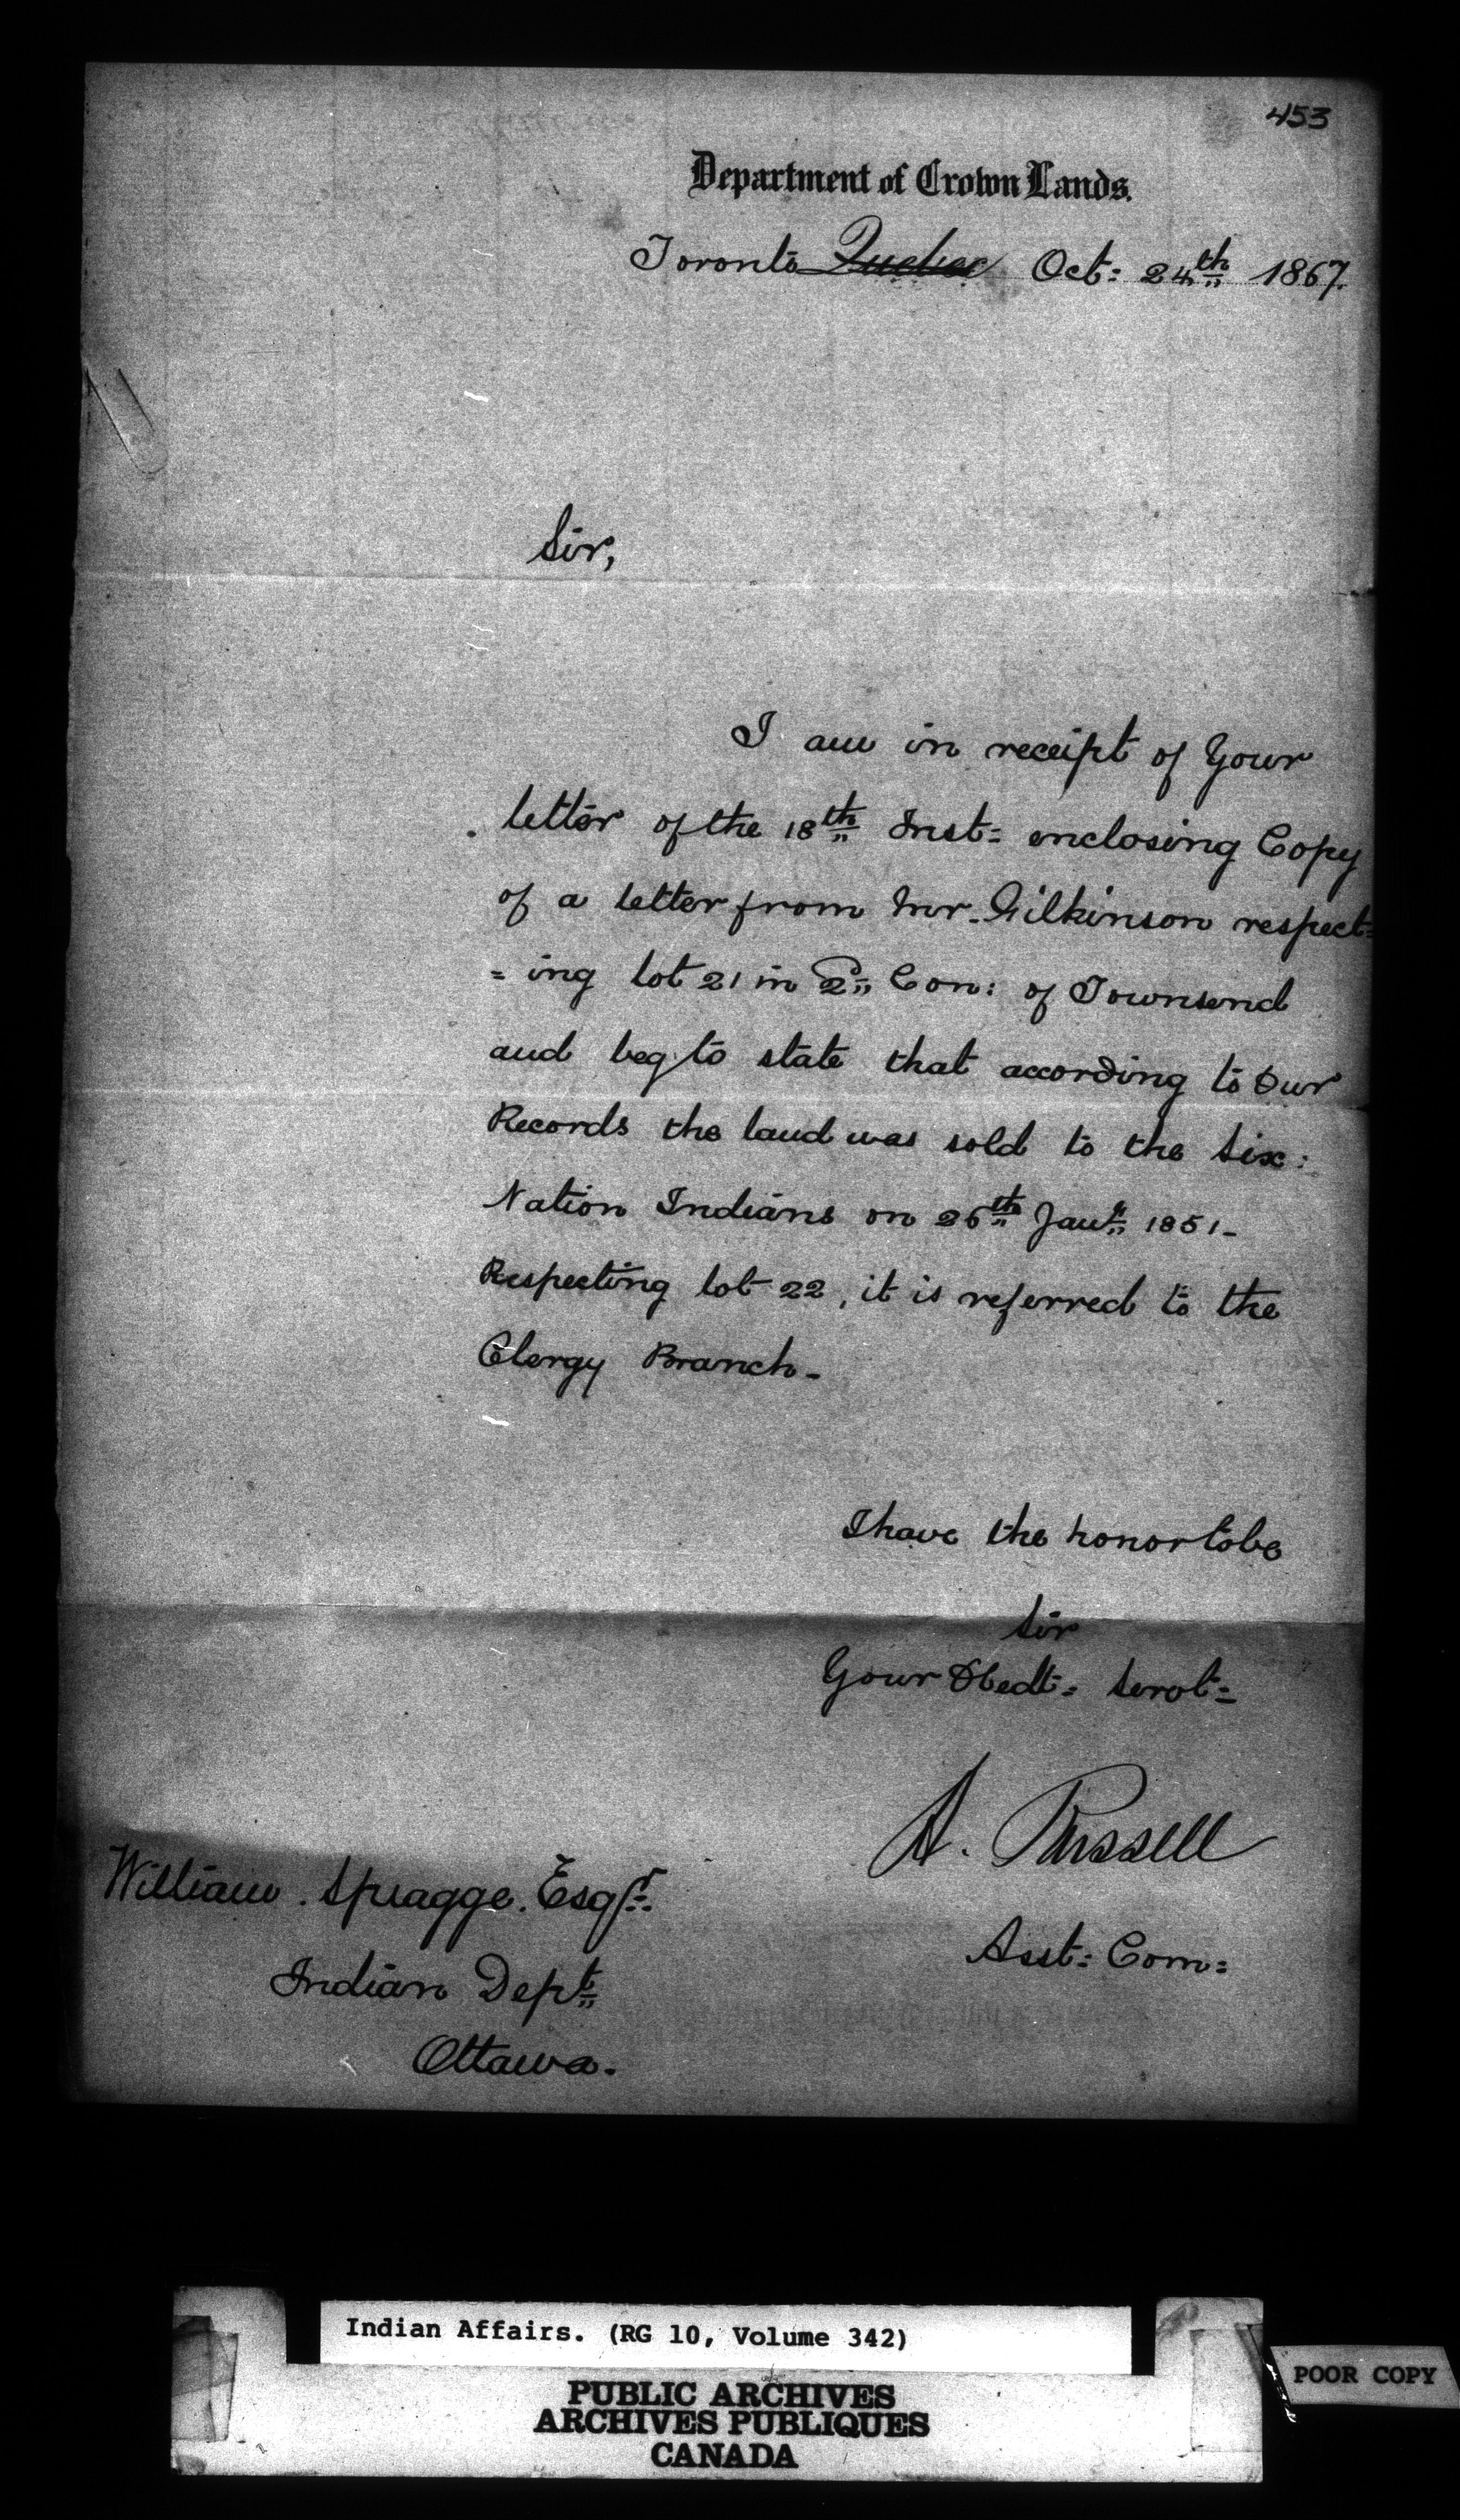 453
Department of Crown Lands.
Toronto Quebec Oct: 24th 1867.
Sir,
I am in receipt of Your
letter of the 18th Inst= enclosing Copy
of a letter from Mr. Gilkinson respect=
=ing lot 21 in 2d Con: of Townsend
and beg to state that according to Our
Records the land was sold to the Six:
Nation Indians on 26th Jany 1851-
Respecting lot 22, it is referred to the
Clergy Branch-
I have the honor to be
Sir
Your Obedt= Servt=
A. Russell
Asst: Com:
William. Spragge. Esqr.
Indian Dept
Ottawa.
Indian Affairs. (RG 10, Volume 342)
PUBLIC ARCHIVES
ARCHIVES PUBLIQUES
CANADA
POOR COPY